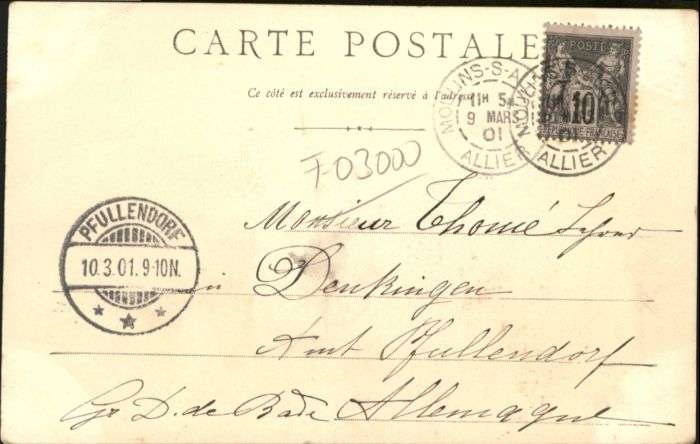 CARTE POSTALE
Ce côté est exclusivement réservé à l'adresse
MOULINS-S-A
11H 5
9 MARS
01
ALLIER
POSTE
10
REPUBLIQUE FRANCAISE
01
ALLIER
F03000
PFULLENDORF
10.3.01.9-10N.
Monsieur Thomé
in Denkingen
Amt Pfullendorf
Gr D. de Bade Allemagne